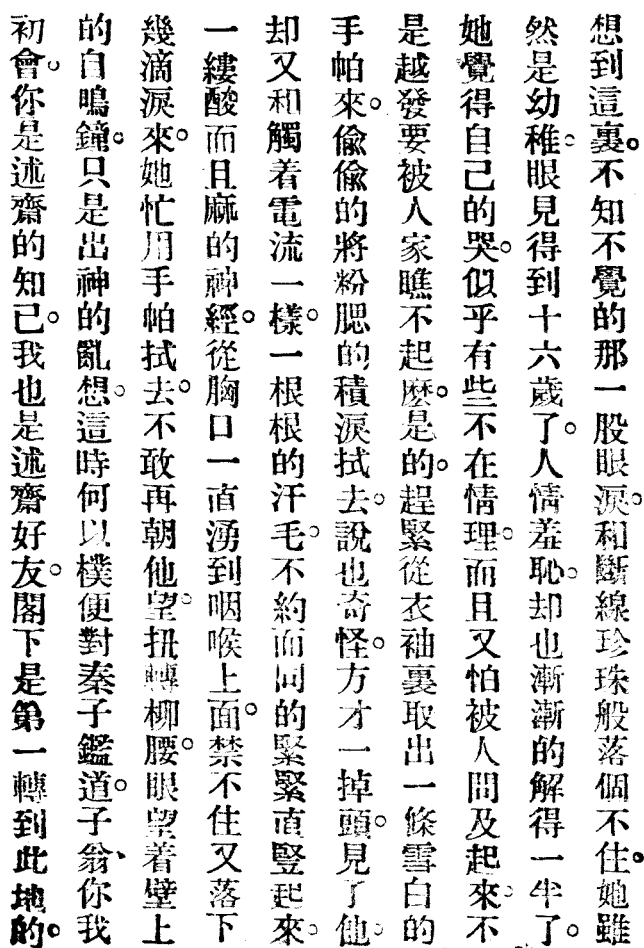 想到這裏。不知不覺的那一股眼淚。和斷線珍珠般落個不住。她雖
然是幼稚。眼見得到十六歲了。人情羞恥。却也漸漸的解得一半了。
她覺得自己的哭。似乎有些不在情理。而且又怕被人問及起來。不
是越發要被人家瞧不起麽。是的。趕緊從衣袖裏取出一條雪白的
手帕來。偷偷的將粉腮的積淚拭去。說也奇怪。方才一掉頭。見了他。
却又和觸着電流一樣。一根根的汗毛。不約而同的緊緊直豎起來。
一縷酸而且麻的神經。從胸口一直湧到咽喉上面。禁不住又落下
幾滴淚來。她忙用手帕拭去。不敢再朝他望。扭轉柳腰。眼望着壁上
的自鳴鐘。只是出神的亂想。這時何以樸便對秦子鑑道。子翁、你我
初會。你是述齋的知己。我也是述齋好友。閣下是第一轉到此地的。